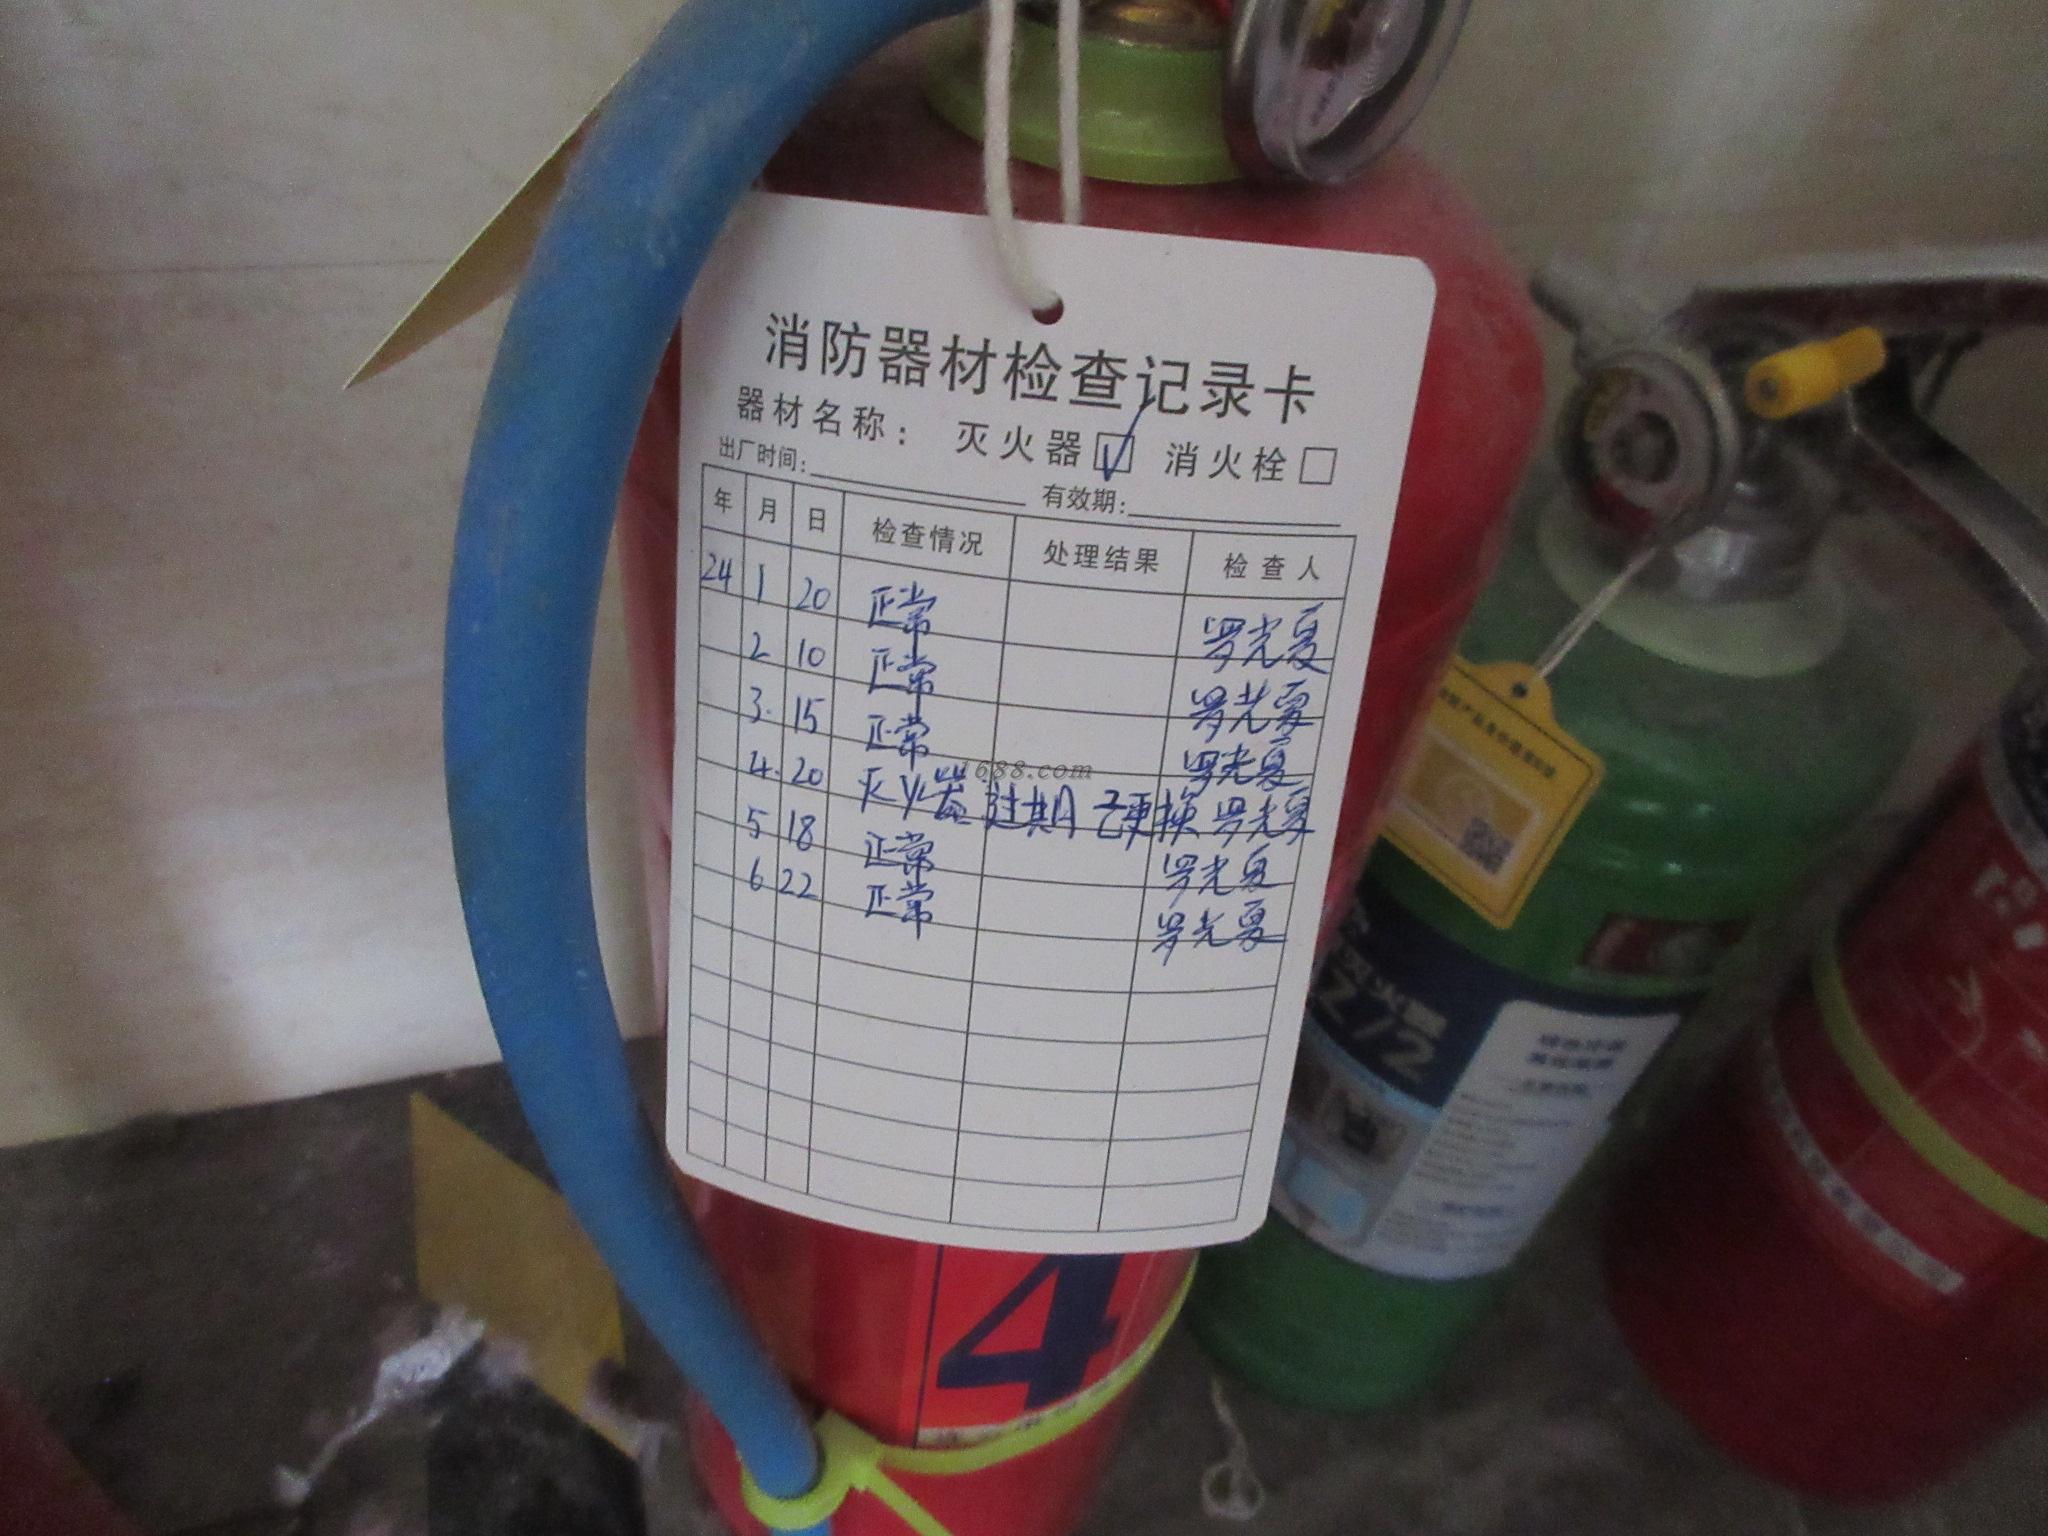 消防器材检查记录卡
器材名称： 灭火器☑ 消火栓□
出厂时间： 有效期：
年 月 日 检查情况 处理结果 检查人
24 1 20 正常 罗光夏
2 10 正常 罗光夏
3. 15 正常 罗光夏
1688.com
4. 20 灭火器过期 已更换 罗光夏
5 18 正常 罗光夏
6 22 正常 罗光夏
灭火器
Z/2
4